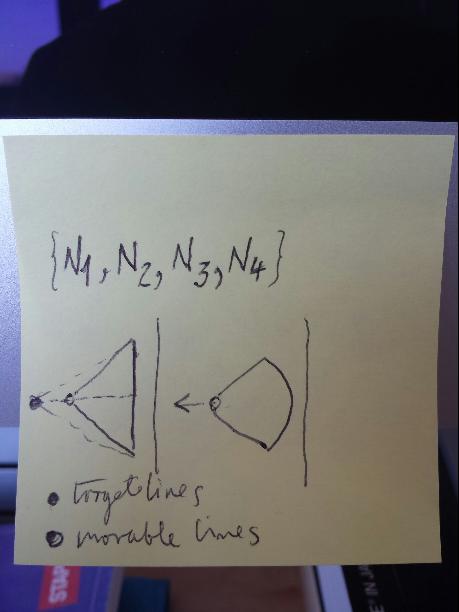 {N1, N2, N3, N4}
target lines
movable lines